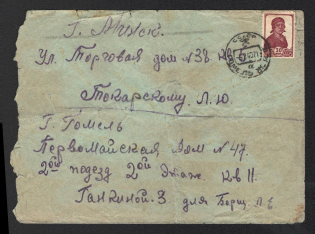 Г. Минск.
Ул. Торговая дом № 38 кв
Токарскому Л. Ю.
Г. Гомель
Первомайская дом № 47.
2ой подезд 2ой Этаж. Кв 11
Ганкиной. З для Борщ Л. Е